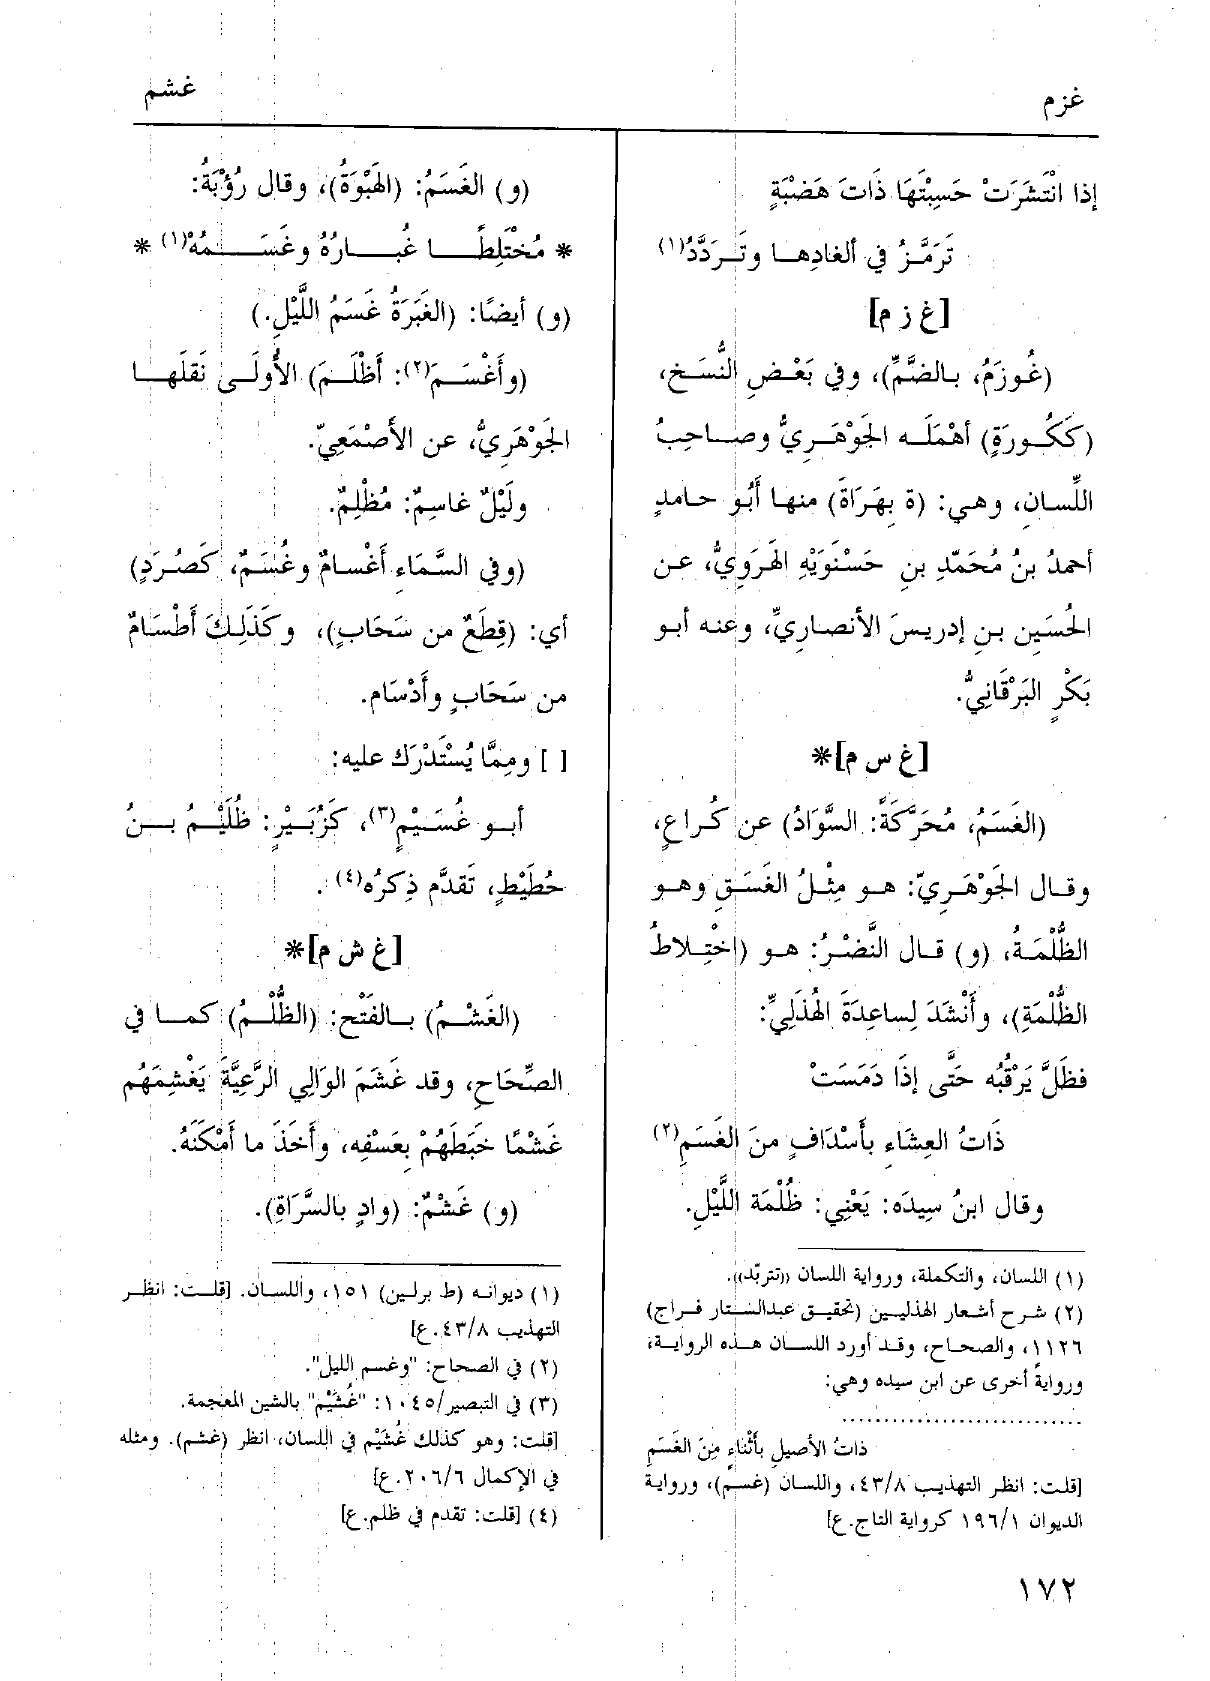 غزم
غشم
إذا انْتَشَرَتْ حَسِبْتَهَا ذَاتَ هَضْبَةٍ
تَرَمَّزُ في ألغادِها وتَرَدَّدُ(١)
[غ ز م]
(غُوزَمُ، بالضَّمِّ)، وفي بَعْضِ النُّسَخِ،
(كَكُورَةٍ) أهْمَلَه الجَوْهَرِيُّ وصاحِبُ
اللِّسانِ، وهي: (ة بِهَرَاةَ) منها أَبُو حامدٍ
أحمدُ بنُ مُحَمّدِ بنِ حَسْنَوَيْهِ الهَرَوِيُّ، عن
الحُسَينِ بنِ إدريسَ الأنصاريِّ، وعنه أبو
بَكْرٍ البَرْقَانِيُّ.
[غ س م]*
(الغَسَمُ، مُحَرَّكَةً: السَّوَادُ) عن كُراعٍ،
وقال الجَوْهَرِيّ: هو مِثْلُ الغَسَقِ وهو
الظُّلْمَةُ، (و) قال النَّضْرُ: هو (اخْتِلاطُ
الظُّلْمَةِ)، وأَنْشَدَ لِساعِدَةَ الهُذَلِيِّ:
فظَلَّ يَرْقُبُه حَتَّى إذَا دَمَسَتْ
ذَاتُ العِشَاءِ بأَسْدَافٍ منَ الغَسَمِ(٢)
وقال ابنُ سِيدَه: يَعْنِي: ظُلْمَةَ اللَّيْلِ.
(١) اللسان، والتكملة، ورواية اللسان ((تتربّد)).
(٢) شرح أشعار الهذليين (تحقيق عبدالستار فراج)
١١٢٦، والصحاح، وقد أورد اللسان هذه الرواية،
وروايةً أخرى عن ابن سيده وهي:
............................
ذاتُ الأصيلِ بأَثْناءٍ مِنَ الغَسَمِ
[قلت: انظر التهذيب ٤٣/٨، واللسان (غسم)، ورواية
الديوان ١٩٦/١ كرواية التاج.ع]
(و) الغَسَمُ: (الهَبْوَةُ)، وقال رُؤْبَةُ:
* مُخْتَلِطًا غُبارُهُ وغَسَمُهْ(١) *
(و) أيضًا: (الغَبَرَةُ غَسَمُ اللَّيْلِ.)
(وأَغْسَمَ(٢): أظْلَمَ) الأُولَى نَقَلَها
الجَوْهَرِيُّ، عن الأَصْمَعِيّ.
ولَيْلٌ غاسِمٌ: مُظْلِمٌ.
(وفي السَّمَاءِ أَغْسامٌ وغُسَمٌ، كَصُرَدٍ)
أي: (قِطَعٌ من سَحَابٍ)، وكَذَلِكَ أَطْسَامٌ
من سَحَابٍ وأَدْسَام.
[ ] ومِمَّا يُسْتَدْرَك عليه:
أبو غُسَيْمٍ(٣)، كَزُبَيْرٍ: ظُلَيْمُ بنُ
حُطَيْطٍ، تَقدَّم ذِكرُه(٤).
[غ ش م]*
(الغَشْمُ) بالفَتْح: (الظُّلْمُ) كما في
الصِّحَاحِ، وقد غَشَمَ الوَالِي الرَّعِيَّةَ يَغْشِمَهُم
غَشْمًا خَبَطَهُمْ بِعَسْفِه، وأَخَذَ ما أَمْكَنَهُ.
(و) غَشْمٌ: (وادٍ بالسَّرَاةِ).
(١) ديوانه (ط برلين) ١٥١، واللسان. [قلت: انظر
التهذيب ٤٣/٨.ع]
(٢) في الصحاح: "وغسم الليل".
(٣) في التبصير/١٠٤٥: "غُشَيْم" بالشين المعجمة.
[قلت: وهو كذلك غُشَيْم في اللسان، انظر (غشم). ومثله
في الإكمال ٢٠٦/٦.ع]
(٤) [قلت: تقدم في ظلم.ع]
١٧٢